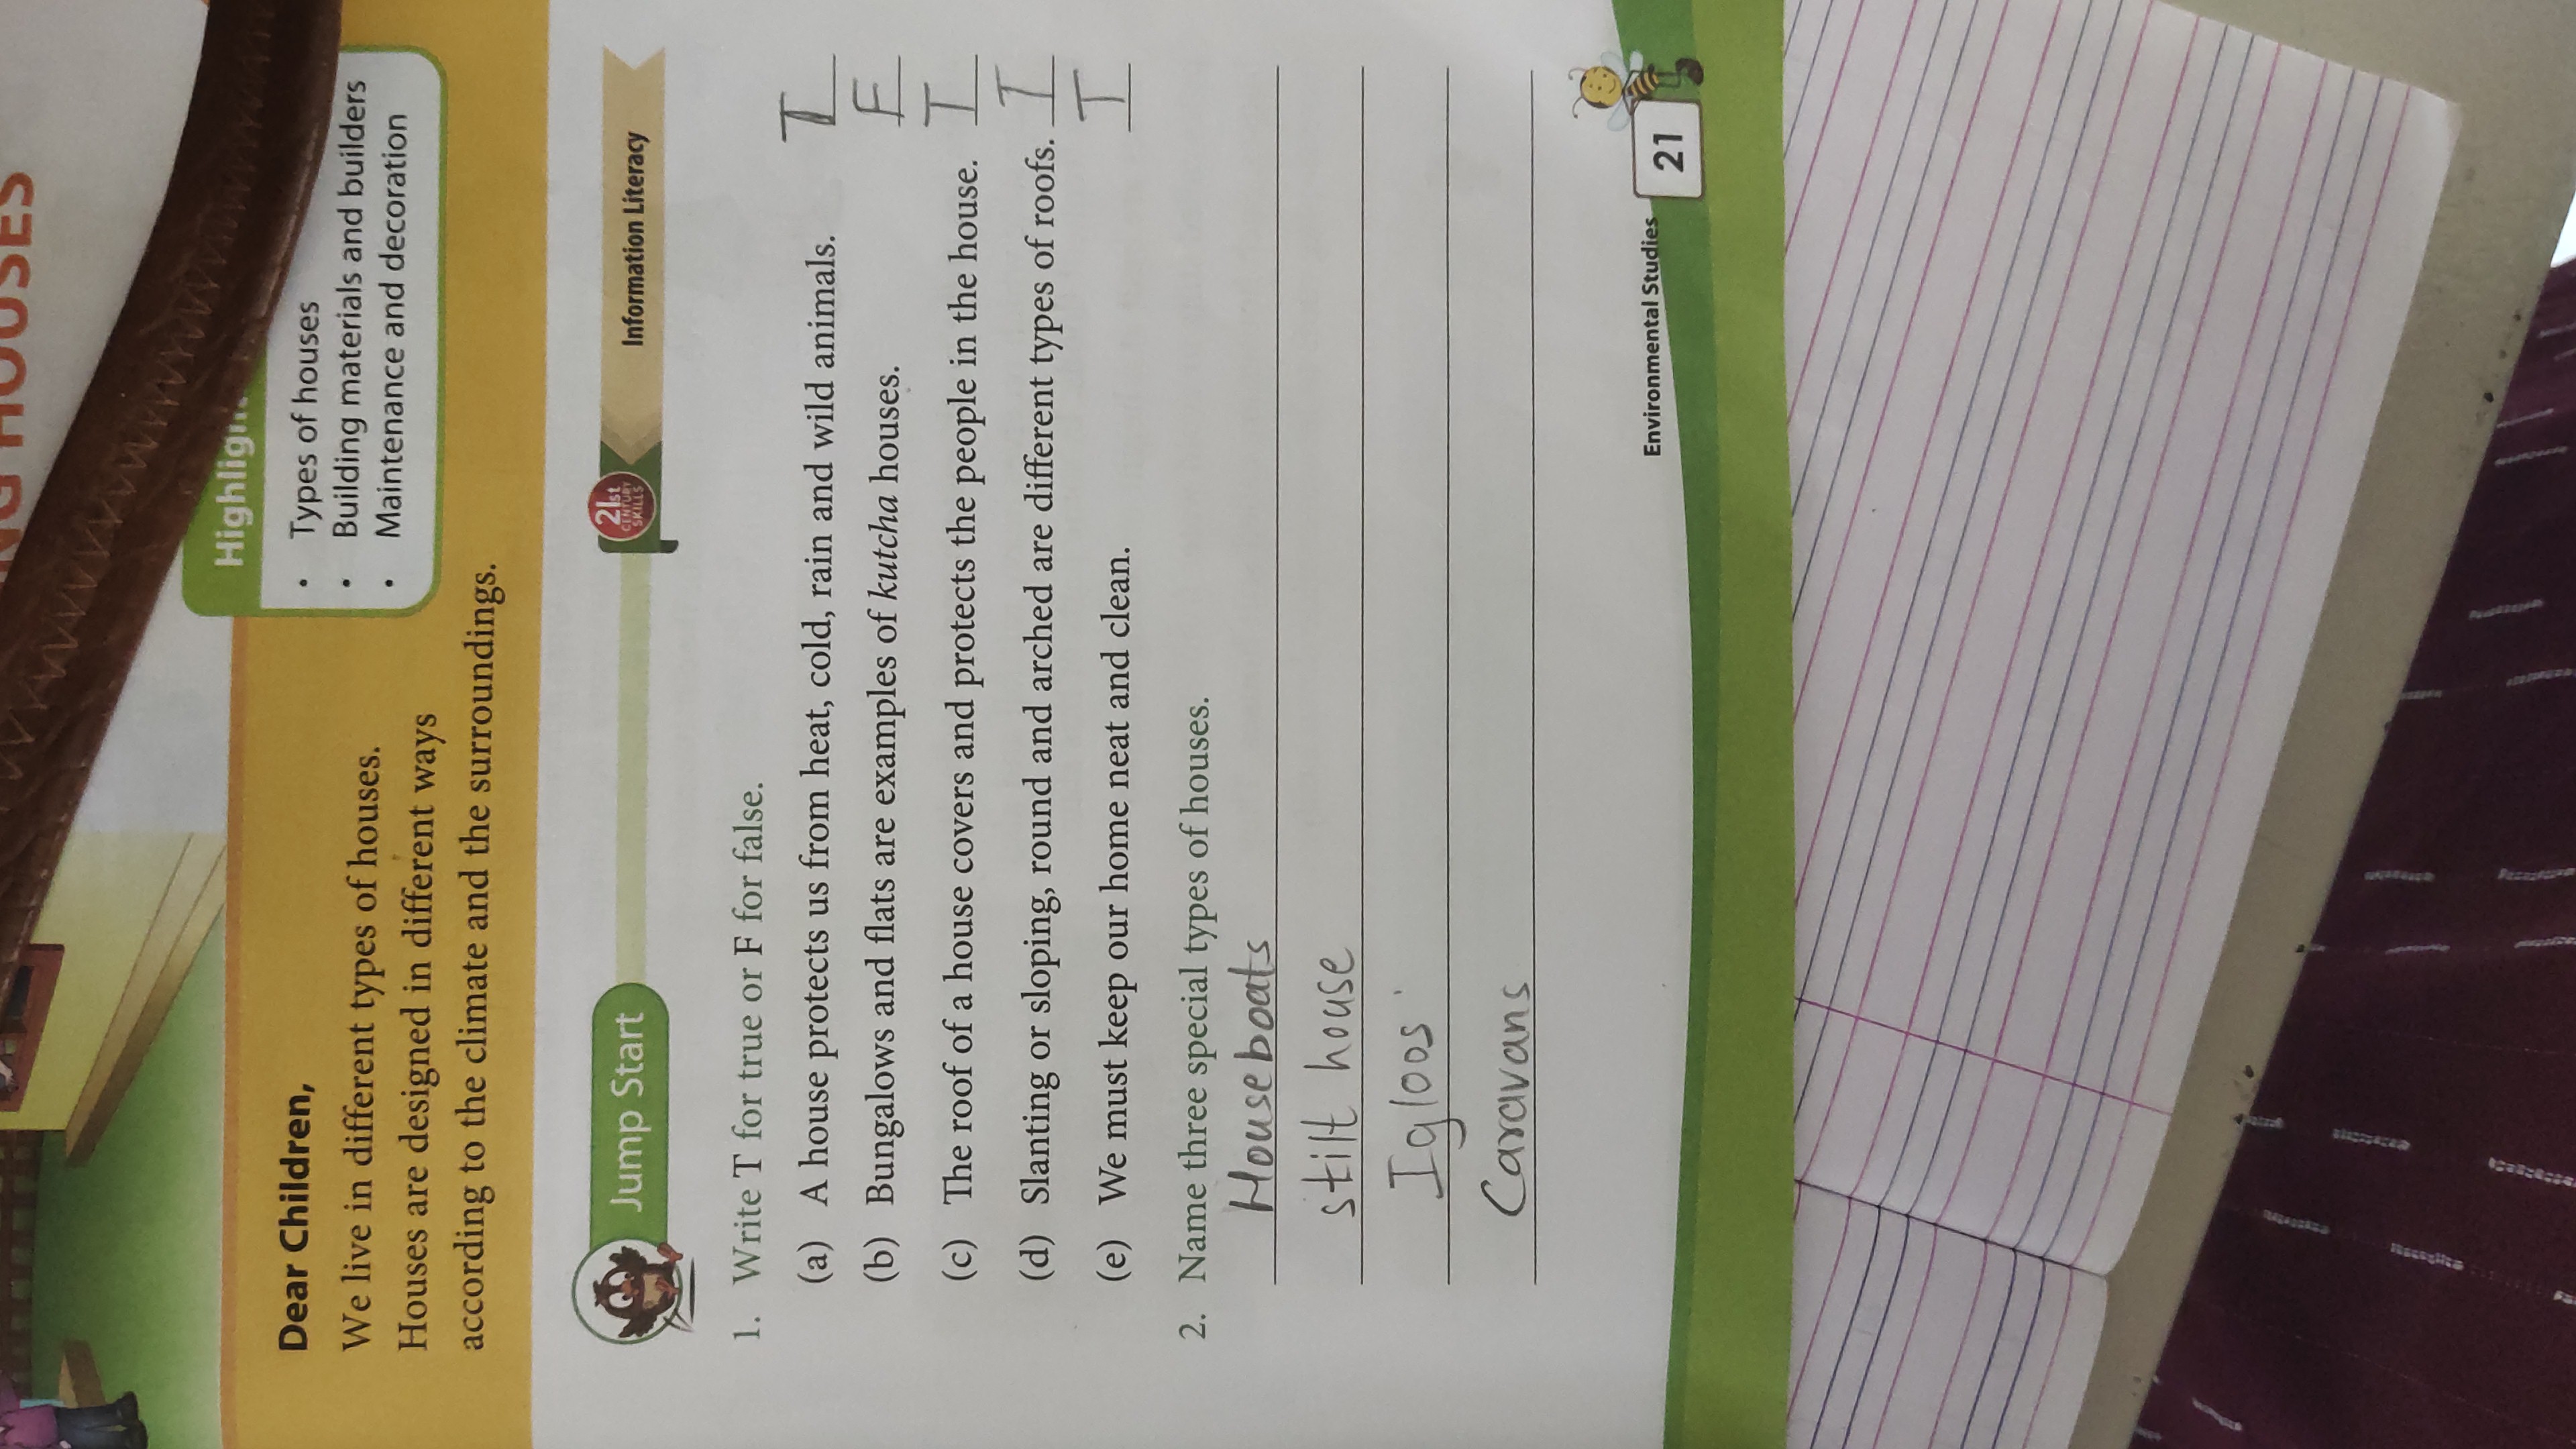 HOUSES
Highligh
• Types of houses
• Building materials and builders
• Maintenance and decoration
Dear Children,
We live in different types of houses.
Houses are designed in different ways
according to the climate and the surroundings.
Jump Start
21st
CENTURY
SKILLS
Information Literacy
1. Write T for true or F for false.
(a) A house protects us from heat, cold, rain and wild animals. T
(b) Bungalows and flats are examples of kutcha houses. F
(c) The roof of a house covers and protects the people in the house. T
(d) Slanting or sloping, round and arched are different types of roofs. T
(e) We must keep our home neat and clean. T
2. Name three special types of houses.
Houseboats
stilt house
Igloos
Caravans
Environmental Studies
21